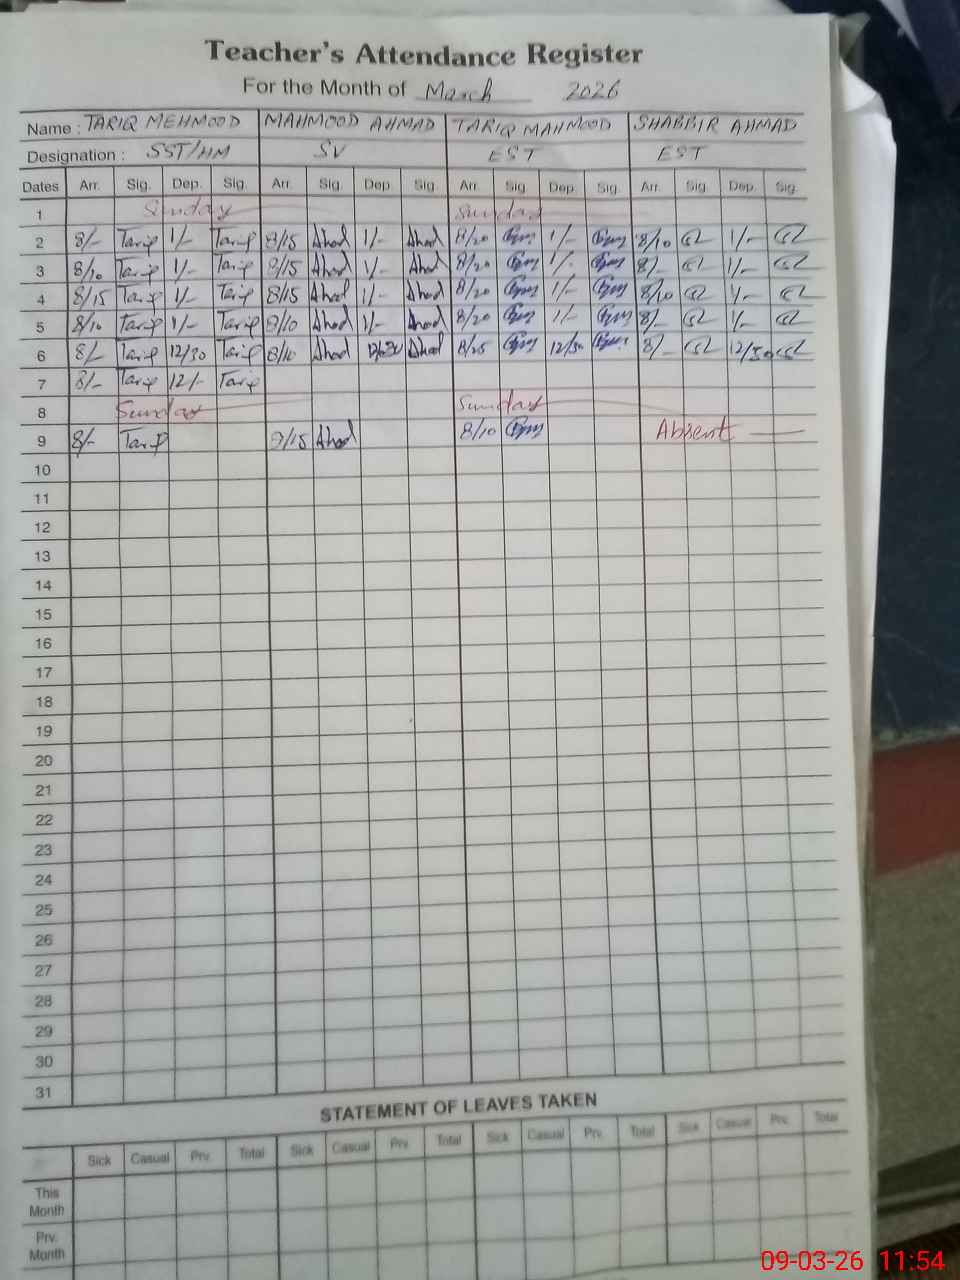 Teacher's Attendance Register
For the Month of March 2026
Name : TARIQ MEHMOOD MAHMOOD AHMAD TARIQ MAHMOOD SHABBIR AHMAD
Designation : SST/HM SV EST EST
Dates Arr. Sig. Dep. Sig. Arr. Sig. Dep. Sig. Arr. Sig. Dep. Sig. Arr. Sig. Dep. Sig.
1 Sunday Sunday
2 8/- Tariq 1/- Tariq 8/15 Ahad 1/- Ahad 8/20 1/- 8/10 1/-
3 8/10 Tariq 1/- Tariq 8/15 Ahad 1/- Ahad 8/20 1/- 8/- 1/-
4 8/15 Tariq 1/- Tariq 8/15 Ahad 1/- Ahad 8/20 1/- 8/10 1/-
5 8/10 Tariq 1/- Tariq 8/10 Ahad 1/- Ahad 8/20 1/- 8/- 1/-
6 8/- Tariq 12/30 Tariq 8/10 Ahad Ahad 8/25 12/30 8/- 12/30
7 8/- Tariq 12/- Tariq
8 Sunday Sunday
9 8/- Tariq Ahad 8/10 Absent
10
11
12
13
14
15
16
17
18
19
20
21
22
23
24
25
26
27
28
29
30
31
STATEMENT OF LEAVES TAKEN
Sick Casual Prv. Total Sick Casual Prv. Total Sick Casual Prv. Total Sick Casual Prv. Total
This
Month
Prv.
Month
09-03-26 11:54